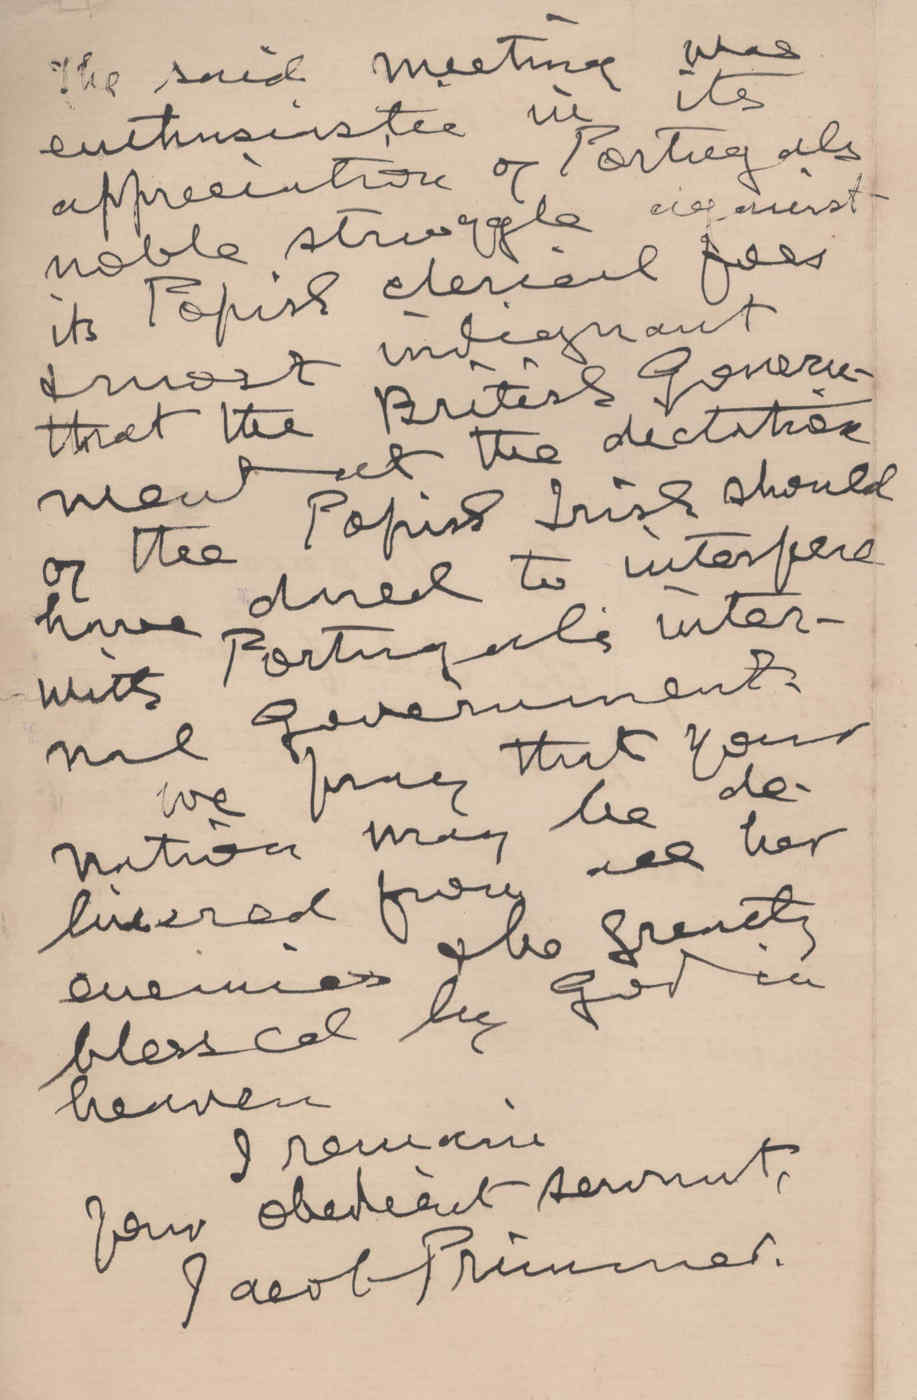 The said meeting was
enthusiastic in its
appreciation of Portugals
noble struggle against
its Popish clerical foes
& most indignant
that the British Govern-
ment at the dictation
of the Popish Irish should
have dared to interfere
with Portugal's inter-
nal Government.
We pray that your
nation may be de-
livered from all her
enemies & be greatly
blessed by God in
heaven
I remain
Your obedient servant,
Jacob Primmer.